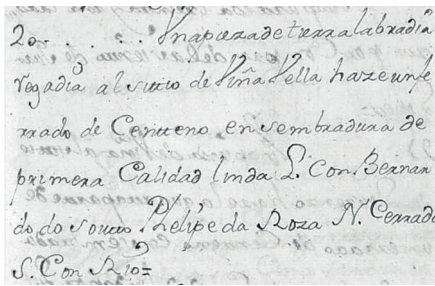 20 . . . . . Vna pieza de tierra labradia
regadia al sitio de Viña Vella haze un fe
rrado de Centeno en sembradura de
primera Calidad linda L. Con Bernar
do do souto P. Phelipe da Roza N. Cerrado
S. Con Rio=